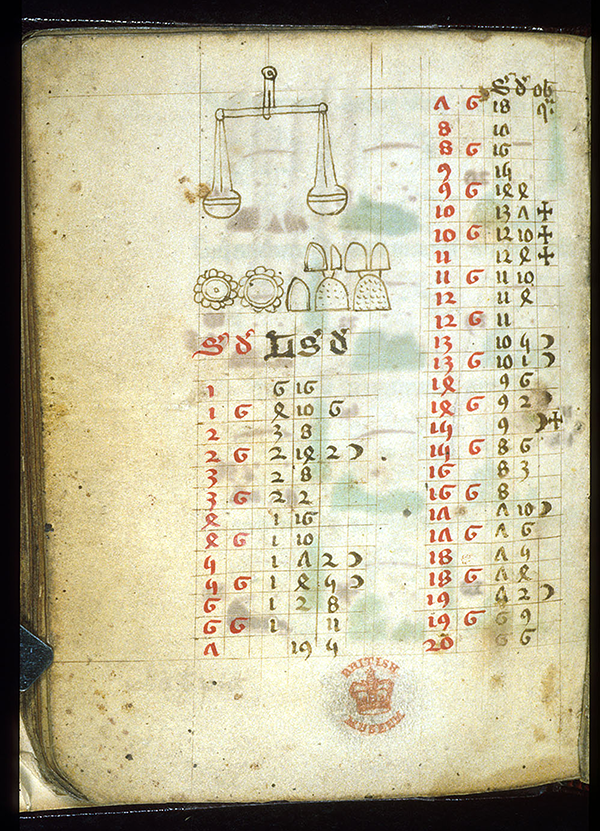 S d L S d
1 6 16
1 6 4 10 6
2 3 8
2 6 2 14 2 )
3 2 8
3 6 2 2
4 1 16
4 6 1 10
5 1 7 2 )
5 6 1 4 5 )
6 1 2 8
6 6 1 11
7 19 5
S d ob
7 6 18 q
8 10
8 6 16
9 15
9 6 14 4
10 13 7 +
10 6 12 10 +
11 12 4 +
11 6 11 10
12 11 4
12 6 11
13 10 5 )
13 6 10 1 )
14 9 6
14 6 9 2 )
15 9 )+
15 6 8 6
16 8 3
16 6 8
17 7 10 )
17 6 7 6
18 7 5
18 6 7 4
19 7 2 )
19 6 6 9
20 6 6
BRITISH
MUSEUM